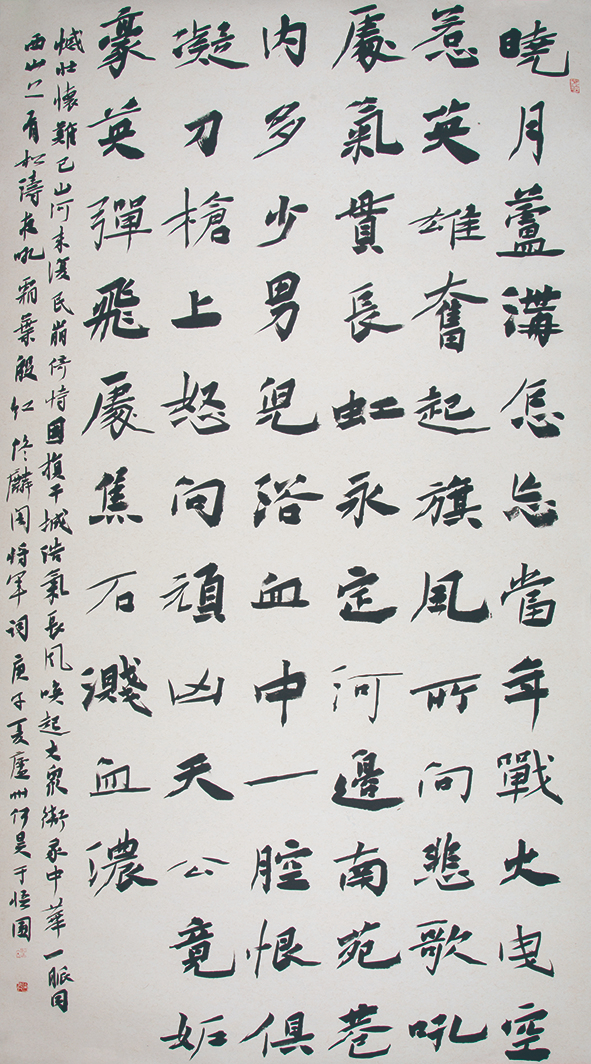 曉月蘆溝怎忘當年戰火曳空
惹英雄奮起旗風所向悲歌吼
處氣貫長虹永定河邊南苑巷
內多少男兒浴血中一腔恨俱
凝刀槍上怒向頑凶天公竟妬
豪英彈飛處焦石濺血濃
憾壯懷難已山河未復民崩倚恃國損干城浩氣長風喚起大眾衛中華一脈同
西山上有松濤夜吼霜葉殷紅佟麟閣將軍詞庚子夏廬州何昊于悟園